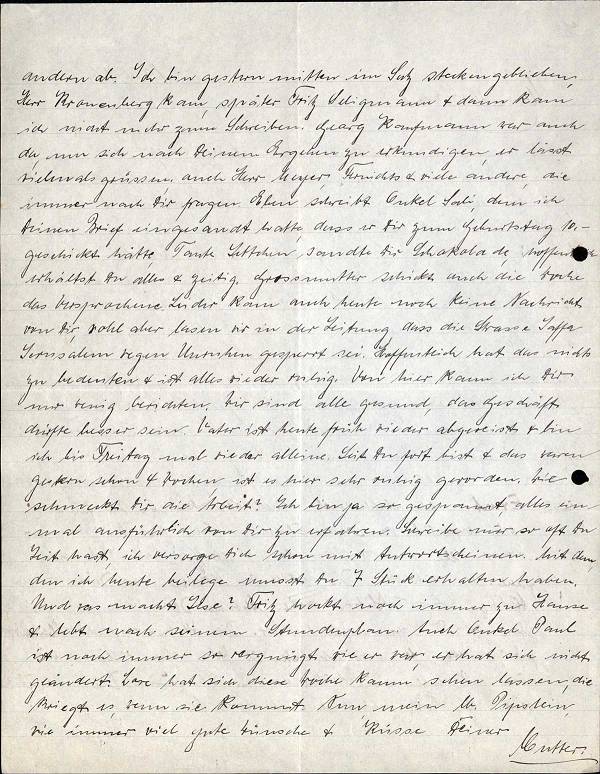 andern ab. Ich bin gestern mitten im Satz steckengeblieben,
Herr Kronenberg kam, später Fritz Seligmann & dann kam
ich nicht mehr zum Schreiben. Georg Kaufmann war auch
da, um sich nach Deinem Ergehen zu erkundigen, er lässt
vielmals grüssen, auch Herr Meyer & viele andere, die
immer nach Dir fragen. Eben schreibt Onkel Sali, dem ich
Deinen Brief eingesandt hatte, dass er Dir zum Geburtstag 10.-
geschickt hätte. Tante Settchen sandte Dir Schokolade, hoffentlich
erhältst Du alles & zeitig. Grossmutter schickt auch die Woche
das versprochene. Leider kam auch heute noch keine Nachricht
von Dir, wohl aber lasen wir in der Zeitung dass die Strasse Jaffa
Jerusalem wegen Unruhen gesperrt sei. Hoffentlich hat das nichts
zu bedeuten & ist alles wieder ruhig. Von hier kann ich Dir
nur wenig berichten. Wir sind alle gesund, das Geschäft
dürfte besser sein. Vater ist heute früh wieder abgereist & bin
ich bis Freitag mal wieder alleine. Seit Du fort bist & das waren
gestern schon 4 Wochen ist es hier sehr ruhig geworden. Wie
schmeckt Dir die Arbeit? Ich bin ja so gespannt, alles ein
mal ausführlich von Dir zu erfahren. Schreibe nur so oft Du
Zeit hast, ich versorge Dich schon mit Antwortscheinen. Mit dem,
den ich heute beilege musst Du 7 Stück erhalten haben.
Und was macht Ilse? Fritz hockt noch immer zu Hause
& lebt nach seinem Stundenplan. Auch Onkel Paul
ist noch immer so vergnügt wie er war, er hat sich nicht
geändert. Lore hat sich diese Woche kaum sehen lassen, die
kriegt es, wenn sie kommt. Nun mein lb. Pipslein,
wie immer viel gute Wünsche & Küsse Deiner
Mutter.